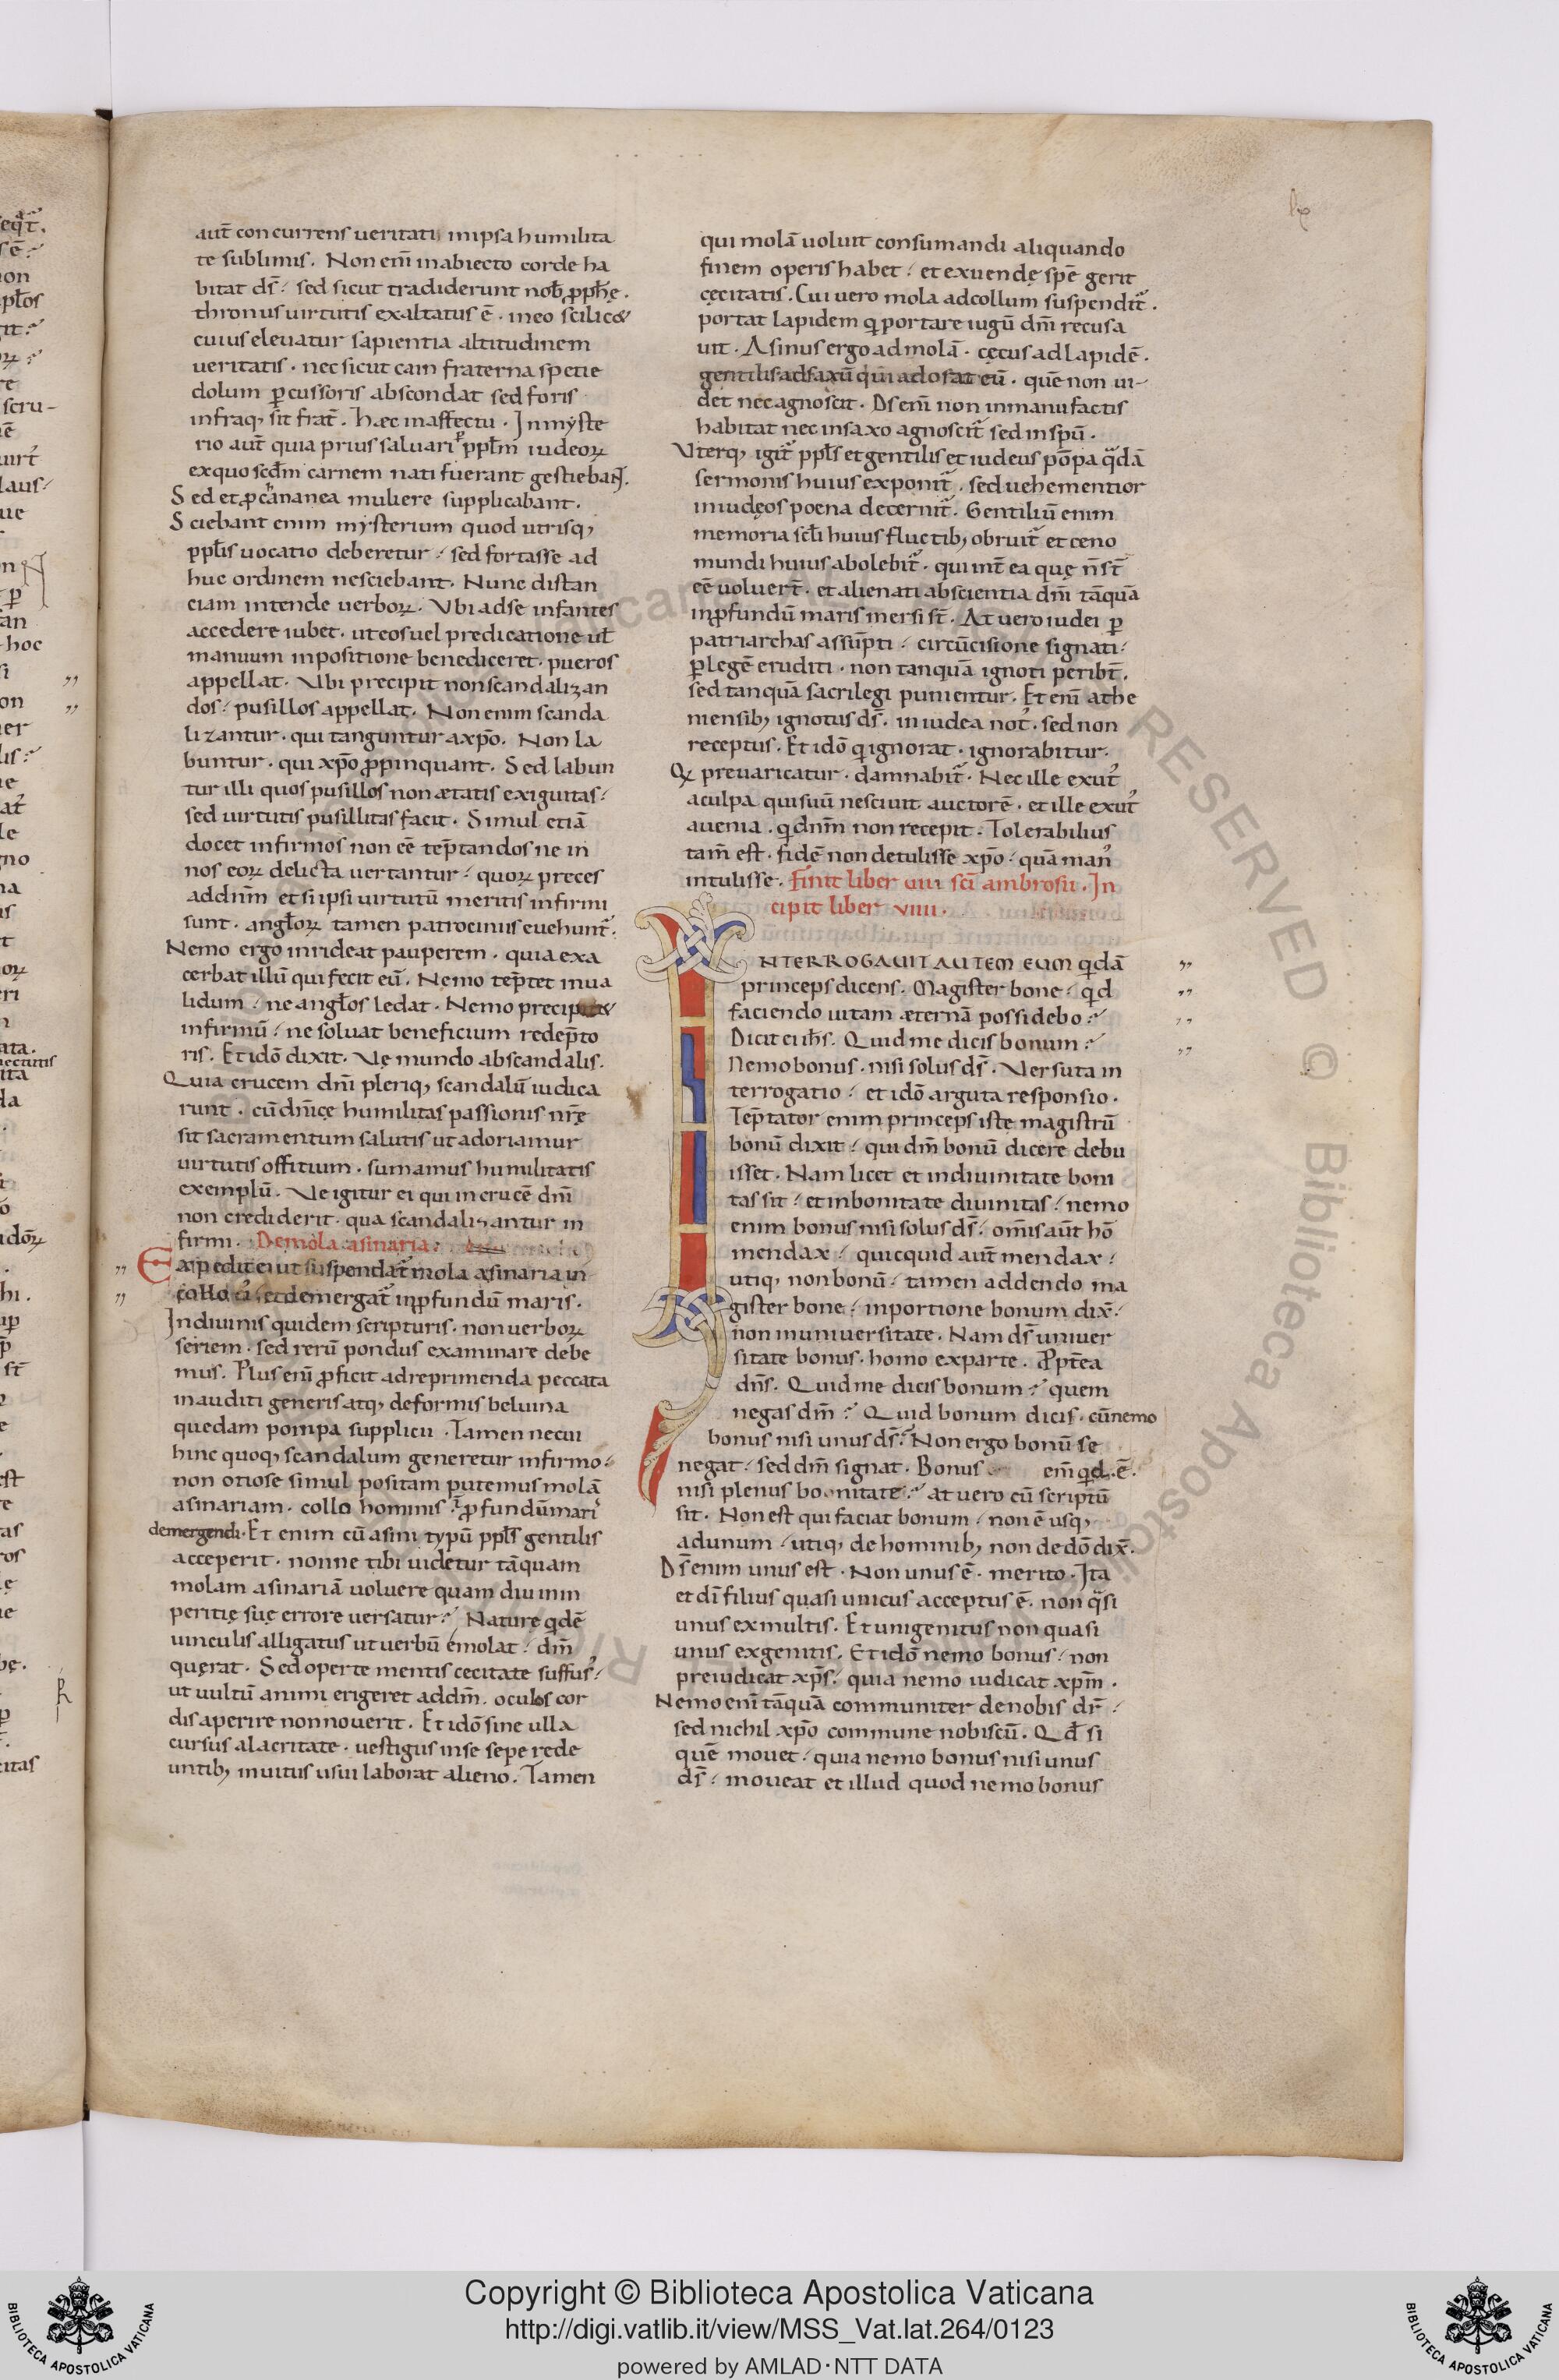 aut̄ concurrens ueritati inipsa humilita
te sublimis. Non em̄ inabiecto corde ha
bitat ds̄. sed sicut tradiderunt nob̄ ꝓph̄ę.
thronus uirtutis exaltatus ē. ineo scilic&
cuius eleuatur sapientia altitudinem
ueritatis. nec sicut cain fraterna spetie
dolum ꝑcussoris abscondat sed foris
infraq, sit frat̄. hæc inaffectu. Inmyste
rio aut̄ quia prius saluari ppl̄m iudeoꝝ
exquo scdm̄ carnem nati fuerant gestiebant.
Sed et ꝓ cananea muliere supplicabant.
Sciebant enim mysterium quod utrisq,
ppl̄is uocatio deberetur. sed fortasse ad
huc ordinem nesciebant. Nunc distan
ciam intende uerboꝝ. Vbi adse infantes
accedere iubet. uteos uel predicatione ul̄
manuum inpositione benediceret. pueros
appellat. Vbi precipit nonscandalizan
dos. pusillos appellat. Non enim scanda
lizantur. qui tanguntur axp̄o. Non la
buntur. qui xp̄o ꝓpinquant. Sed labun
tur illi quos pusillos non ætatis exiguitas.
sed uirtutis pusillitas facit. Simul etiā
docet infirmos non eē tēptandos ne in
nos eoꝝ delicta uertantur. quoꝝ preces
addnm̄ etsi ipsi uirtutū meritis infirmi
sunt. angl̄oꝝ tamen patrociniis euehunt̃.
Nemo ergo inrideat pauperem. quia exa
cerbat illū qui fecit eū. Nemo tēptet inua
lidum. ne angl̄os ledat. Nemo precipit&
infirmū. ne soluat beneficium redēpto
ris. Et idō dixit. Vę mundo abscandalis.
Quia crucem dn̄i pleriq, scandalū iudica
runt. cū dn̄icę humilitas passionis nr̄ę
sit sacramentum salutis ut adoriamur
uirtutis offitium. sumamus humilitatis
exemplū. Ve igitur ei qui in crucē dn̄i
non crediderit. qua scandalizantur in
firmi. De mola asinaria.
Expedit ei ut suspendat̃ mola asinaria in
collo ei᾿. et demergat̃ inꝓfundū maris.
Indiuinis quidem scripturis. non uerboꝝ
seriem. sed rerū pondus examinare debe
mus. Plus eni ꝓficit adreprimenda peccata
inauditi generis atq, deformis beluina
quedam pompa supplicii. Tamen necui
hinc quoq, scandalum generetur infirmo.
non otiose simul positam putemus molā
asinariam. collo hominis ꝓfundū mari
demergendi. Et enim cū asini typū ppl̄s gentilis
acceperit. nonne tibi uidetur tāquam
molam asinariā uoluere quam diu inin
peritię suę errore uersatur. Naturę qdē
uinculis alligatus ut uerbū emolat. dm̄
quęrat. Sed operte mentis cecitate suffus᾿.
ut uultū animi erigeret addm̄. oculos cor
dis aperire non nouerit. Et idō sine ulla
cursus alacritate. uestigiis inse sepe rede
untib, inuitus usui laborat alieno. Tamen
qui molā uoluit consumandi aliquando
finem operis habet. et exuendę spē gerit
cęcitatis. Cui uero mola adcollum suspendit̃.
portat lapidem q portare iugū dn̄i recusa
uit. Asinus ergo ad molā. cęcus ad lapidē.
gentilis adsaxū qui adorat eū. quē non ui-
det nec agnoscit. Ds em̄ non inmanufactis
habitat nec insaxo agnoscit̃ sed inspū.
Vterq, igit̃ ppl̄s et gentilis et iudeus pōpa qdā
sermonis huius exponit̃. sed uehementior
iniudęos poena decernit̃. Gentiliū enim
memoria scl̄i huius fluctib, obruit̃ et ceno
mundi huius abolebit̃. qui int̄ ea quę n̄ st̄
eē uoluert̄. et alienati abscientia dn̄i tāquā
inꝓfundū maris mersi st̄. At uero iudei ꝑ
patriarchas assūpti. circūcisione signati.
ꝑ legē eruditi. non tanquā ignoti peribt̄.
sed tanquā sacrilegi punientur. Et em̄ athe
niensib, ignotus ds̄. in iudea not᾿. sed non
receptus. Et idō q ignorat. ignorabitur.
Q preuaricatur. damnabit̃. Nec ille exut᾿
aculpa qui suū nesciuit auctorē. et ille exut᾿
auenia. q dnm̄ non recepit. Tolerabilius
tam̄ est. fidē non detulisse xp̄o. quā man᾿
intulisse. Finit liber uiii sc̄i ambrosii. In
cipit liber viiii.
INTERROGAVIT AVTEM EVM qdā
princeps dicens. Magister bone. qd
faciendo uitam æternā possidebo.
Dicit ei ih̄s. Quid me dicis bonum.
Nemo bonus. nisi solus ds̄. Versuta in
terrogatio. et idō arguta responsio.
Tēptator enim princeps iste magistrū
bonū dixit. qui dm̄ bonū dicere debu
isset. Nam licet et indiuinitate boni
tas sit. et inbonitate diuinitas. nemo
enim bonus nisi solus ds̄. om̄is aūt hō
mendax. quicquid aut̄ mendax.
utiq, non bonū. tamen addendo ma
gister bone. inportione bonum dix̄.
non inuniuersitate. Nam ds̄ uniuer
sitate bonus. homo exparte. Ꝓpt̄ea
dn̄s. Quid me dicis bonum. quem
negas dm̄. Quid bonum dicis. cū nemo
bonus nisi unus ds̄. Non ergo bonū se
negat. sed dm̄ signat. Bonus em̄ qd. ē.
nisi plenus bonitate. at uero cū scriptū
sit. Non est qui faciat bonum. non ē usq,
adunum. utiq, de hominib, non de dō dix̄.
Ds̄ enim unus est. Non unus ē. merito. Ita
et di filius quasi unicus acceptus ē. non qsi
unus exmultis. Et unigenitus non quasi
unus exgenitis. Et idō nemo bonus. non
preiudicat xp̄s. quia nemo iudicat xpm̄.
Nemo eni tāquā communiter denobis dr̄.
sed nichil xp̄o commune nobiscū. Qd̄ si
quē mouet. quia nemo bonus nisi unus
ds̄. moueat et illud quod nemo bonus
Copyright © Biblioteca Apostolica Vaticana
http://digi.vatlib.it/view/MSS_Vat.lat.264/0123
powered by AMLAD·NTT DATA